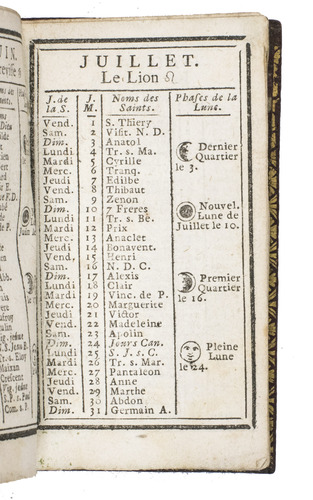 JUILLET.
Le Lion ♌
J. de la S. J. M. Noms des Saints. Phases de la Lune.
Vend. 1 S. Thiery
Sam. 2 Visit. N. D.
Dim. 3 Anatol
Lundi 4 Tr. s. Ma.
Mardi 5 Cyrille
Merc. 6 Tranq.
Jeudi 7 Edilbe
Vend. 8 Thibaut
Sam. 9 Zenon
Dim. 10 7 Freres
Lundi 11 Tr. s. Be.
Mardi 12 Prix
Merc. 13 Anaclet
Jeudi 14 Bonavent.
Vend. 15 Henri
Sam. 16 N. D. C.
Dim. 17 Alexis
Lundi 18 Clair
Mardi 19 Vinc. de P.
Merc. 20 Marguerite
Jeudi 21 Victor
Vend. 22 Madeleine
Sam. 23 Apolin
Dim. 24 Jours Can.
Lundi 25 S. J. s. C.
Mardi 26 Tr. s. Mar.
Merc. 27 Pantaleon
Jeudi 28 Anne
Vend. 29 Marthe
Sam. 30 Abdon
Dim. 31 Germain A.
Dernier
Quartier
le 3.
Nouvel.
Lune de
Juillet le 10.
Premier
Quartier
le 16.
Pleine
Lune
le 24.